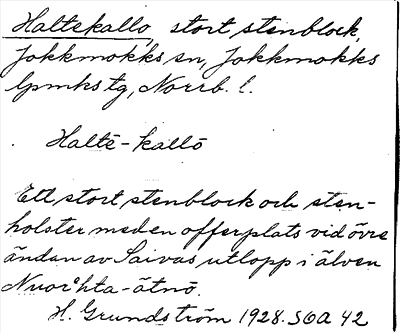 Haltekallo, stort stenblock,
Jokkmokks sn, Jokkmokks
lpmks tg, Norrb. l.
Haltē-kallō
Ett stort stenblock och sten-
holster med en offerplats vid övre
ändan av Saivas utlopp i älven
Nuorͦhta-ätnō.
H. Grundström 1928. SOA 42